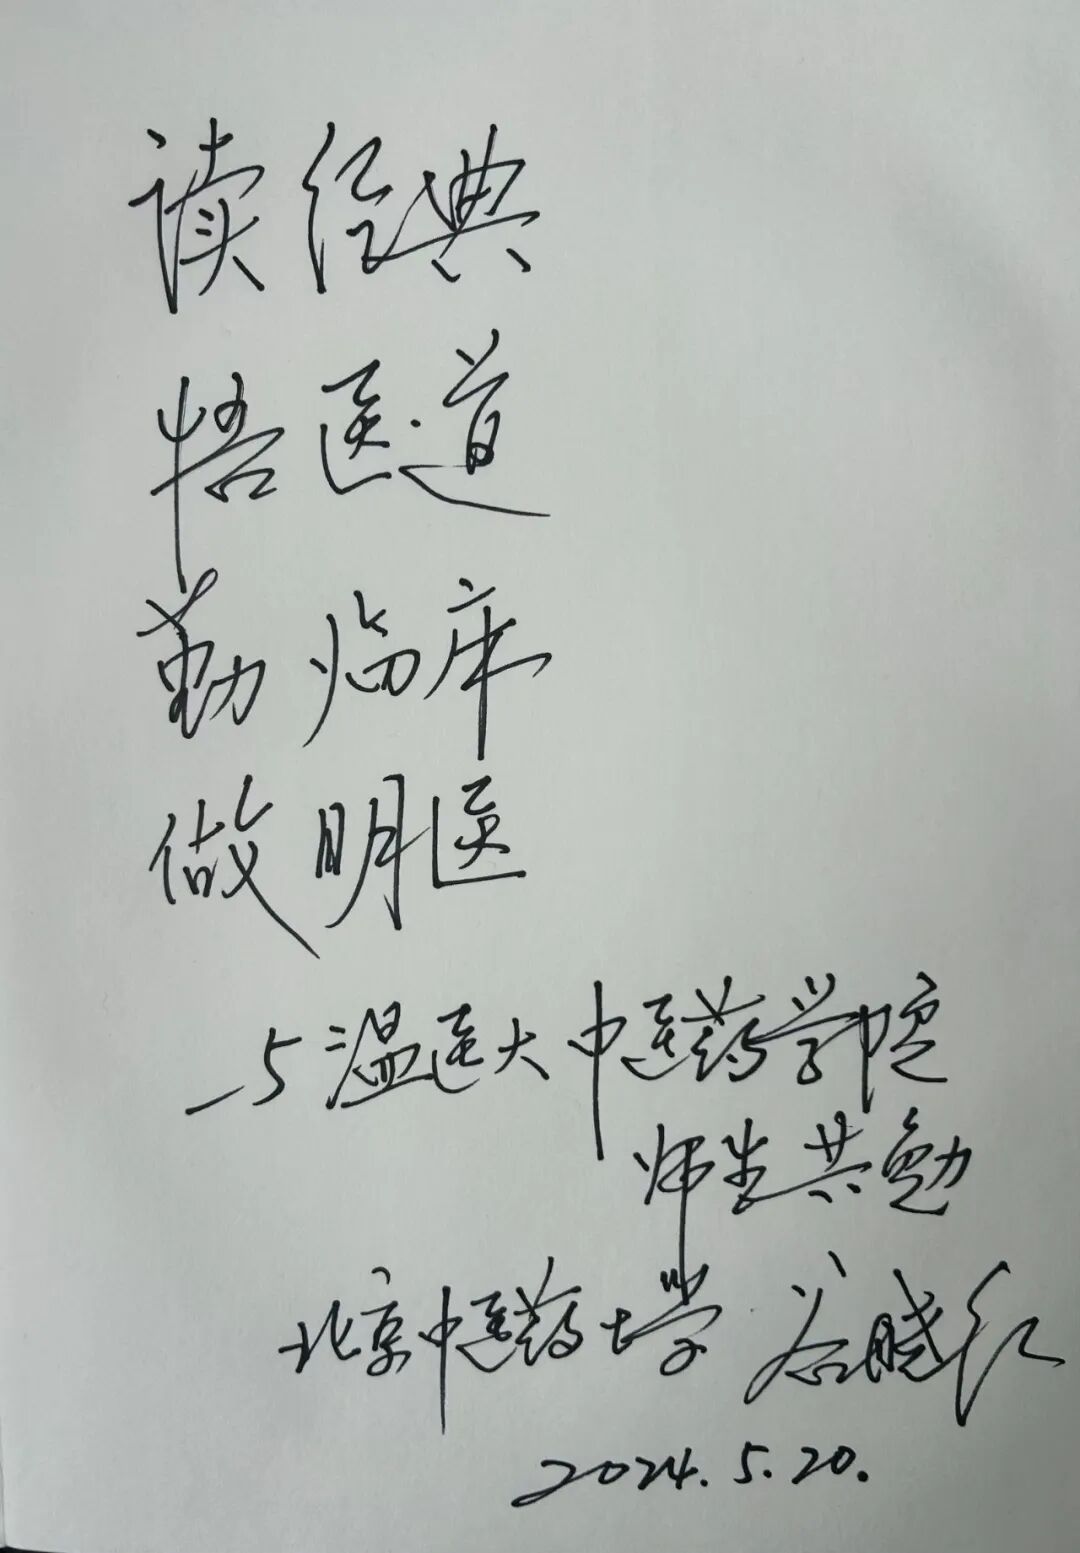 读经典
悟医道
勤临床
做明医
与温医大中医药学院
师生共勉
北京中医药大学 谷晓红
2024.5.20.